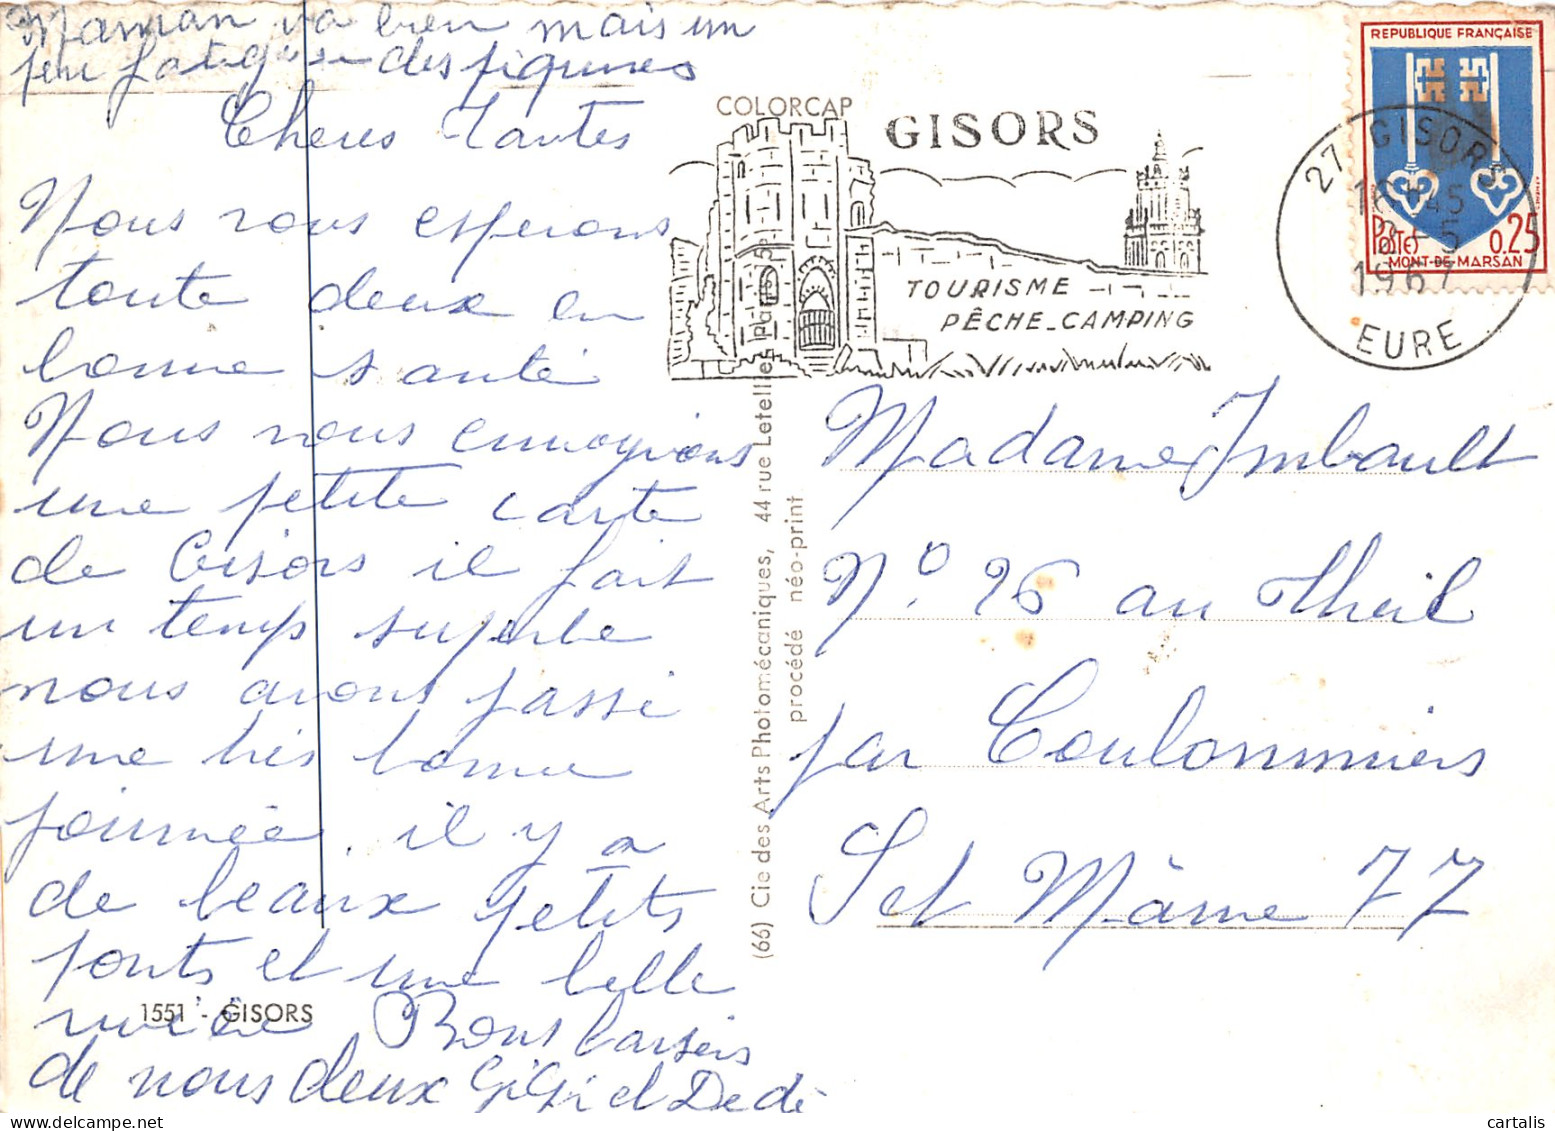 Maman va bien mais un
peu fatiguée des piqures
Cheres Tantes
Nous vous esperons
toute deux en
bonne santé
Nous vous envoyions
une petite carte
de Gisors il fait
un temps superbe
nous avons passé
une très bonne
journée, il y a
de beaux petits
ponts et une belle
rivière Bons baisers
de nous deux GiGi et Dedé
1551 - GISORS
COLORCAP
(66) Cie des Arts Photomécaniques, 44 rue Letellier, Paris
procédé néo-print
GISORS
TOURISME
PÊCHE_CAMPING
REPUBLIQUE FRANÇAISE
POSTES 0.25
MONT-DE-MARSAN
27 GISORS
16H45
8-5
1967
EURE
Madame Imbault
N° 26 au Theil
par Coulommiers
Set Marne 77
cartalis